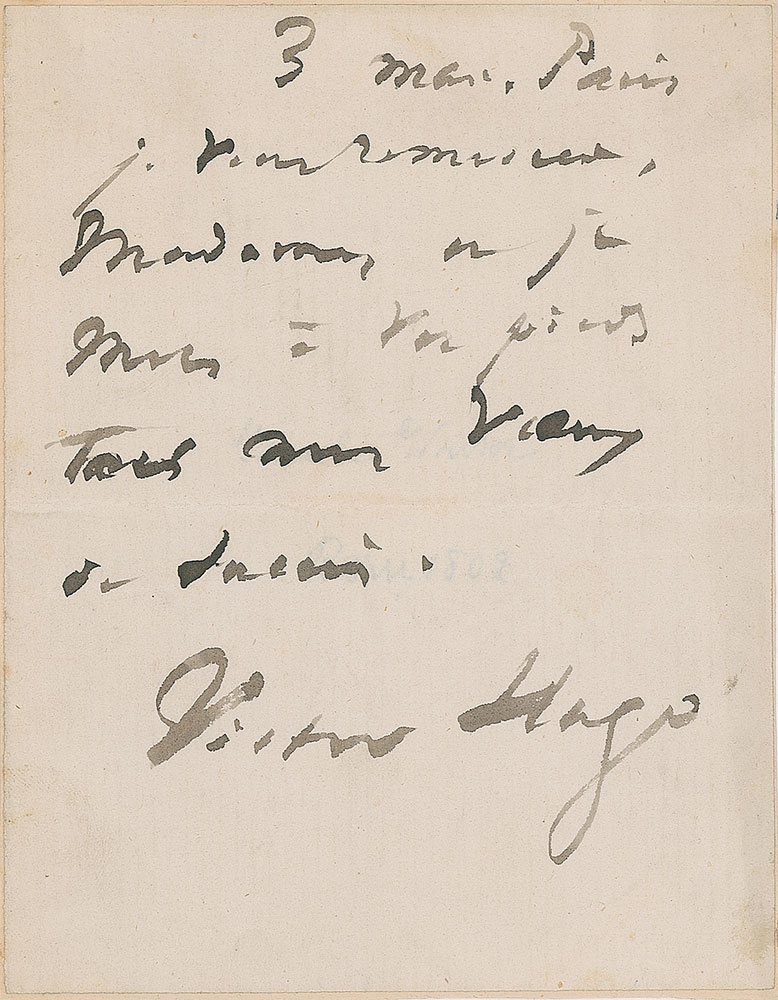 3 mai. Paris
je vous remercie,
Madame, et je
mets à vos pieds
tous mes vœux
de succès.
Victor Hugo